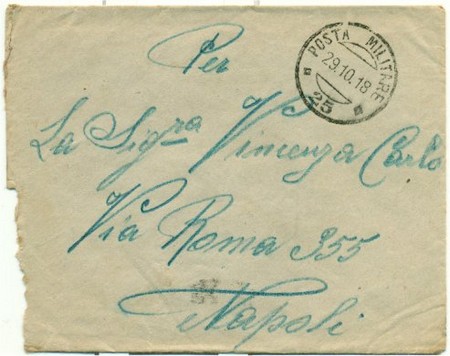 Per
POSTA MILITARE
29.10.18
25
La Sig.ra Vincenza Carlo
Via Roma 355
Napoli